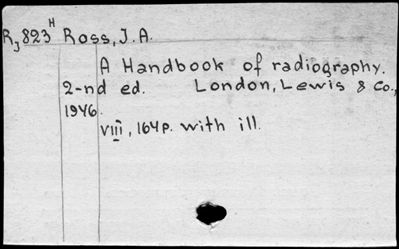 RJ823H Ross, J.A.
A Handbook of radiography.
2-nd ed. London, Lewis & Co.,
1946.
VIII, 164p. with ill.